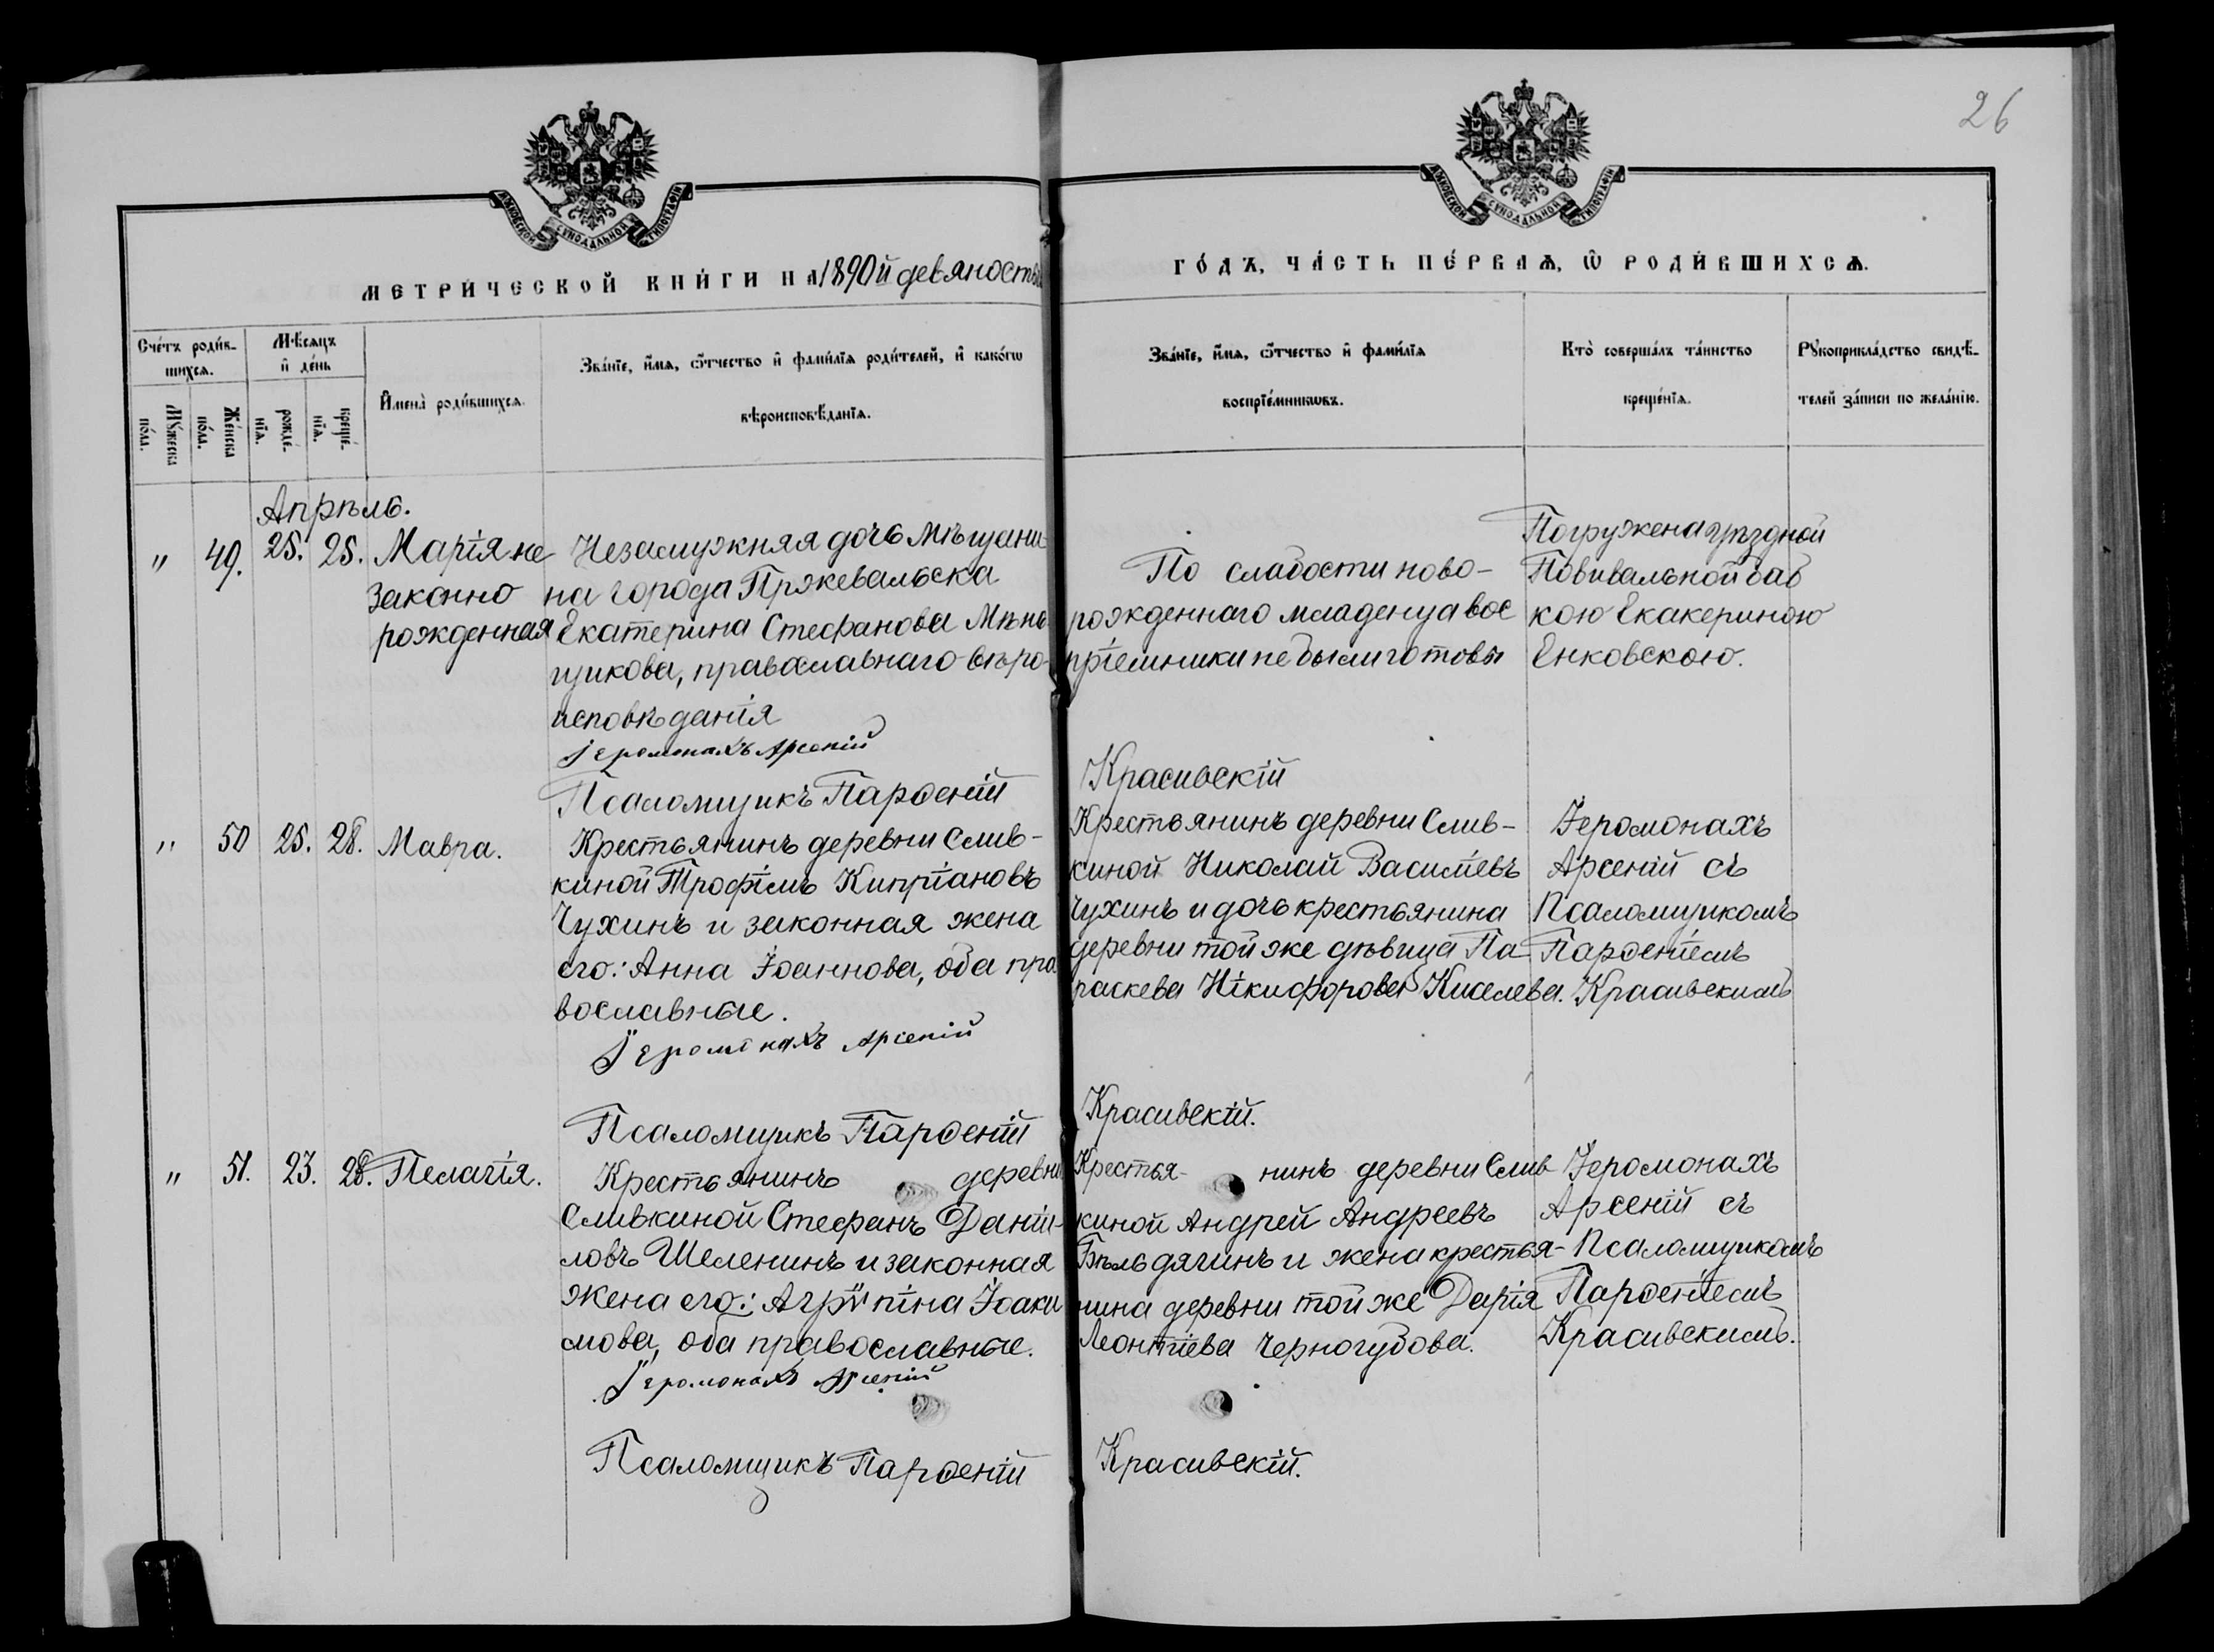 26
МОСКОВСКОЙ СѴНОДАЛЬНОЙ ТИПОГРАФІИ
МОСКОВСКОЙ СѴНОДАЛЬНОЙ ТИПОГРАФІИ
МЕТРИ́ЧЕСКОЙ КНИ́ГИ НА 1890й девяностый
ГО́ДЪ, ЧА́СТЬ ПЕ́РВАѦ, Ѡ РОДИ́ВШИХСѦ.
Сче́тъ роди́в-
шихсѧ.
Мꙋ́жеска по́ла.
Же́нска по́ла.
Мѣ́сѧцъ
и҆ де́нь
рожде́-
нїѧ.
креще́-
нїѧ.
И҆мена̀ роди́вшихсѧ.
Зва́нїе, и҆́мѧ, ѻ҆́тчество и҆ фами́лїѧ роди́телей, и҆ како́гѡ
вѣроисповѣ́данїѧ.
Зва́нїе, и҆́мѧ, ѻ҆́тчество и҆ фами́лїѧ
воспрїе́мникѡвъ.
Кто̀ соверша́лъ та́инство
креще́нїѧ.
Рꙋкоприкла́дство свидѣ́-
телей за́писи по жела́нїю.
Апрѣль.
" 49. 25. 25. Марія не
законно
рожденная
Незамужняя дочь мѣщани
на города Пржевальска
Екатерина Стефанова Мѣнь
щикова, православнаго вѣро-
исповѣданія
Іеромонахъ Арсеній
Псаломщикъ Парѳеній
По слабости ново-
рожденнаго младенца вос
пріемники не были готовы
Красивскій
Погружена уѣздной
Повивальной баб
кою Екакериною
Енковскою.
" 50 25. 28. Мавра.
Крестьянинъ деревни Слив-
киной Трофімъ Кипріановъ
Чухинъ и законная жена
его: Анна Іоаннова, оба пра
вославные.
Іеромонахъ Арсеній
Псаломщикъ Парѳеній
Крестьянинъ деревни Слив-
киной Николай Василіевъ
Чухинъ и дочь крестьянина
деревни той же дѣвица Па
раскева Нікифорова Киселева.
Красивскій.
Іеромонахъ
Арсеній съ
Псаломщикомъ
Парѳеніемъ
Красивскимъ
" 51. 23. 28. Пелагія.
Крестьянинъ деревни
Сливкиной Стефанъ Даніи-
ловъ Шеленинъ и законная
жена его: Агрѵпіна Іоаки
мова, оба православные.
Іеромонахъ Арсеній
Псаломщикъ Парѳеній
Крестья- нинъ деревни Слив
киной Андрей Андреевъ
Бѣльдягинъ и жена крестья-
нина деревни той же Дарія
Леонтіева Черногубова.
Красивскій.
Іеромонахъ
Арсеній съ
Псаломщикомъ
Парѳеніемъ
Красивскимъ.